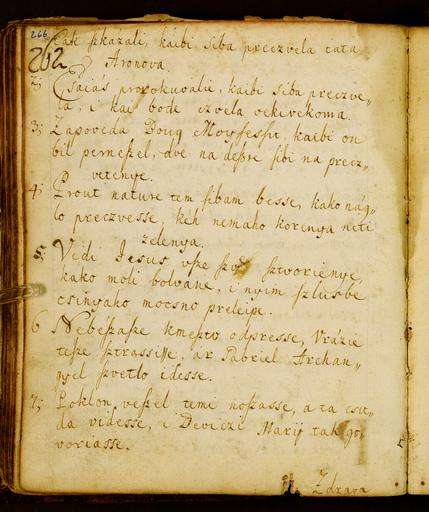 266
262
Tak ſzkazali, kaibi siba preczvela tata
Aronova.
2; Esaiás prorokuvalie, kaibi siba preczve„
la, i kai bode czvela vekivekoma.
3; Zapoveda Boug Moyſeſſu, kaibi on
bil perneſzel, dve na deſzre ſibi na precz„
vetenye.
4; Prout nature tem ſibam besse, kako nag„
lo preczvesse, keh nemaho korenya niti
zelenya.
5; Vidi Jesus vſze ſztvorienye,
kako moli bolvane, i nyim ſzlusbe
csinyaho mocsno preleipe.
6 Nebéſzaſze kmeſzto odpresse, Vrázie
teſze ſztrassiſſe, ar Gabriel Archan„
gyel ſzvetlo idesse.
7; Poklon veſzel temi noſzasse, a ta csu„
da videsse, i Deviczi Marij tak go„
voriasse.
Zdrava